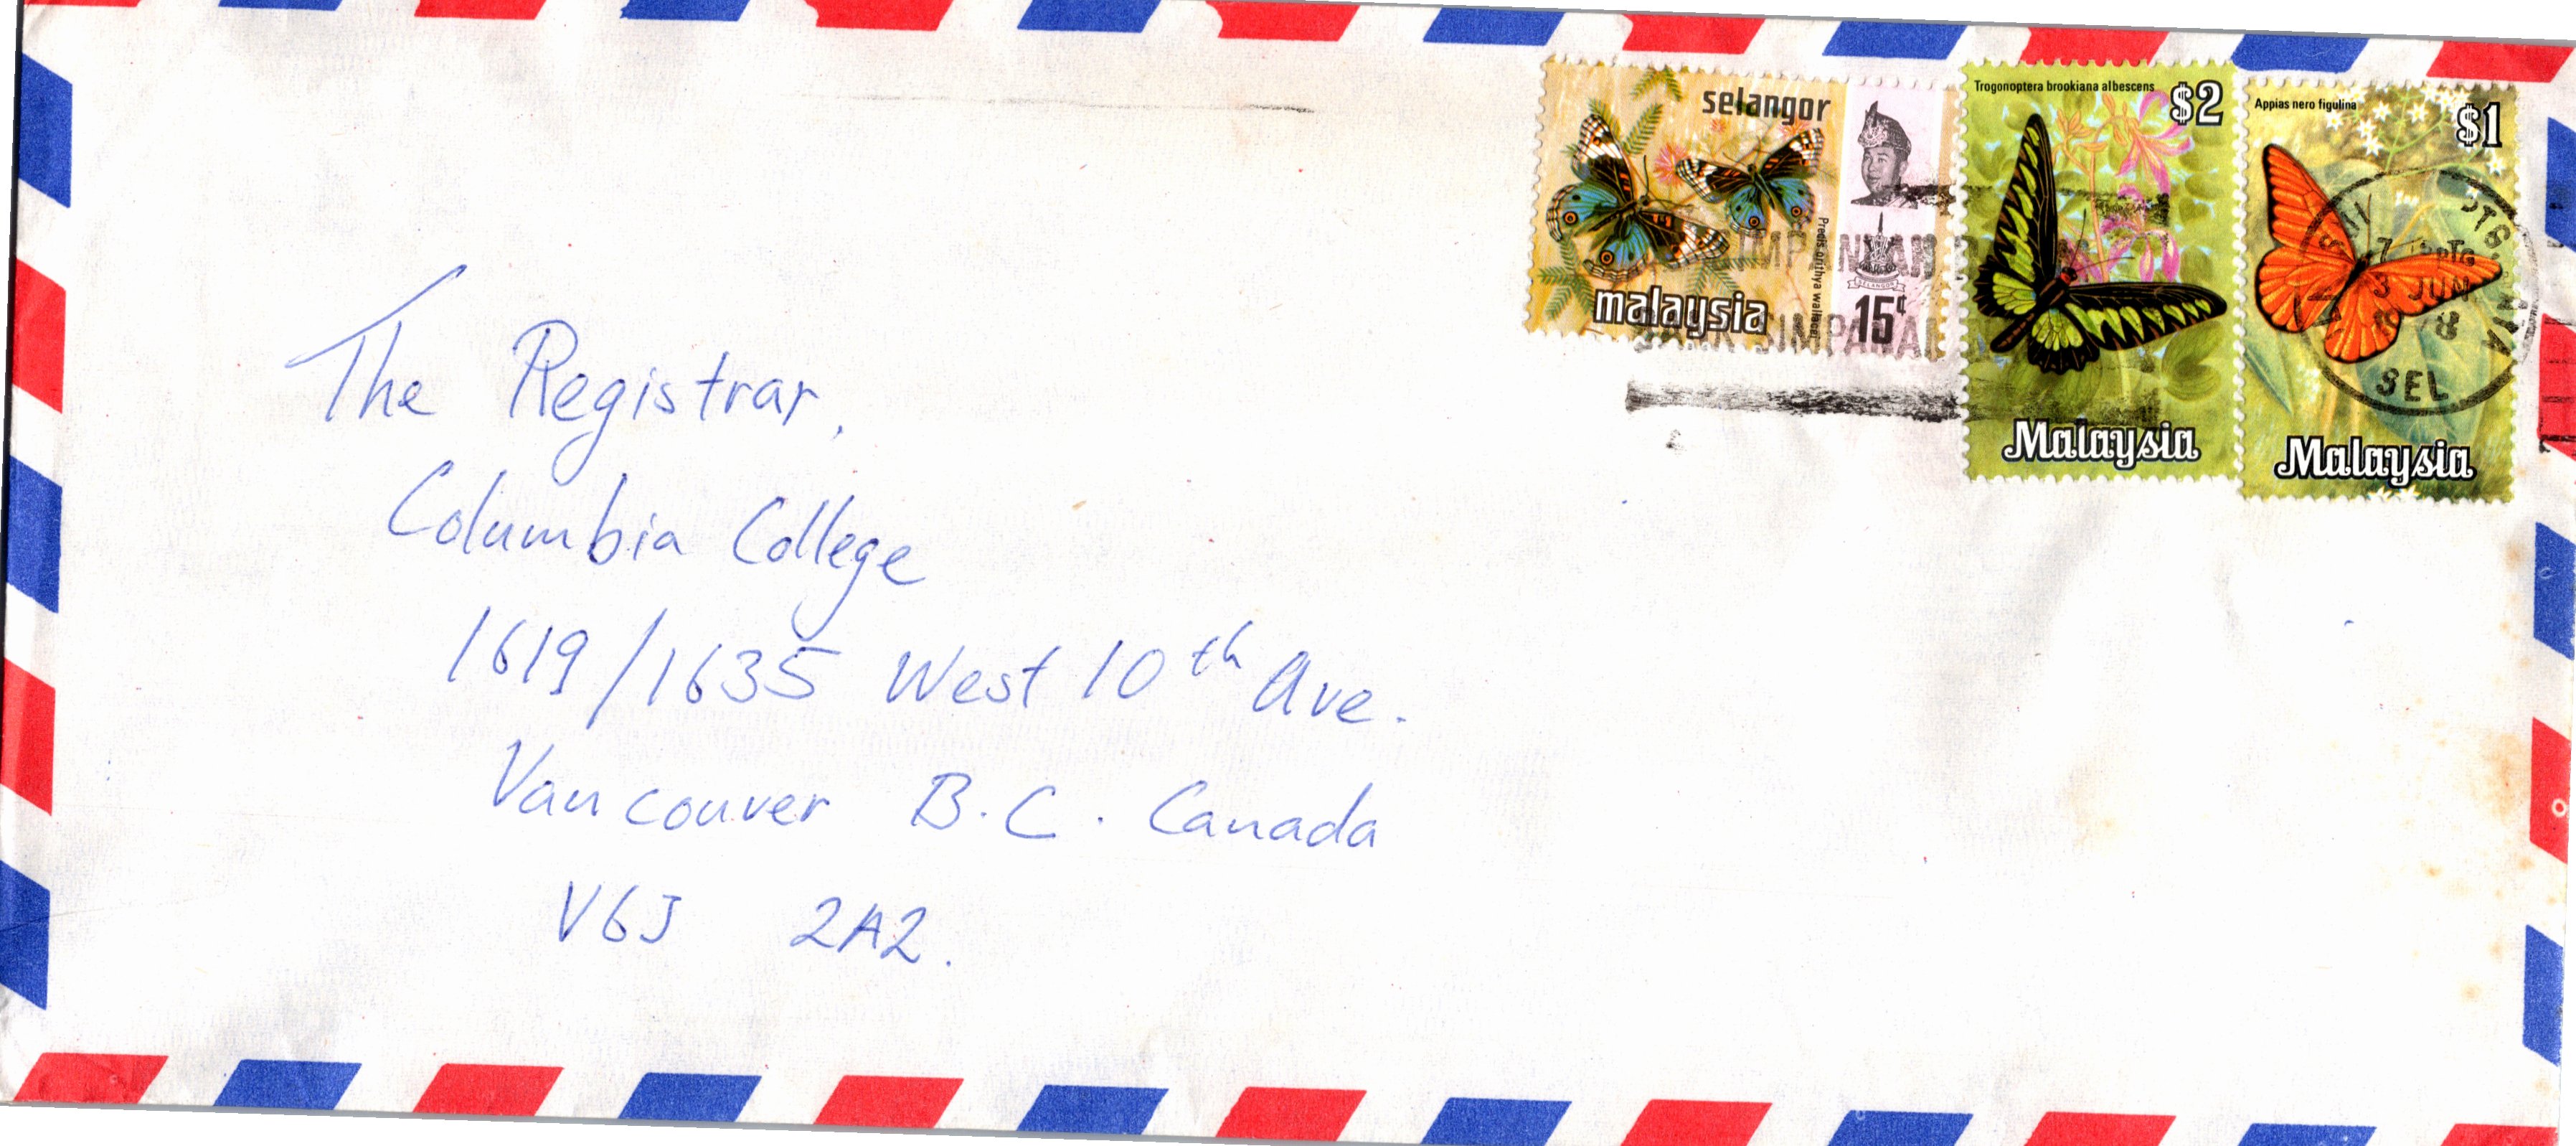 selangor
Precis orithya wallacei
malaysia
15¢
Trogonoptera brookiana albescens
$2
Malaysia
Appias nero figulina
$1
Malaysia
BANK SIMPANAN
3 JUN
SEL
The Registrar,
Columbia College
1619/1635 West 10th Ave.
Vancouver B.C. Canada
V6J 2A2.